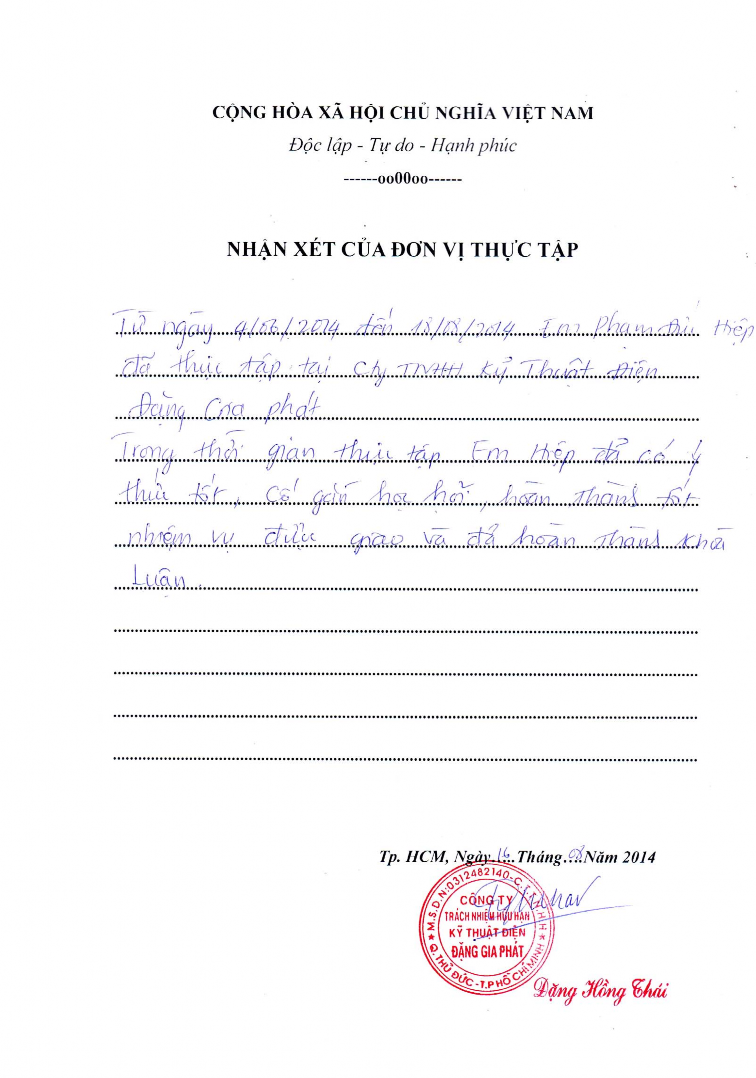 CỘNG HÒA XÃ HỘI CHỦ NGHĨA VIỆT NAM
Độc lập - Tự do - Hạnh phúc
------oo00oo------
NHẬN XÉT CỦA ĐƠN VỊ THỰC TẬP
Từ ngày 4/06/2014 đến 18/08/2014 Em Phạm Hiệp
đã thực tập tại Cty TNHH Kỹ Thuật Điện
Đặng Gia phát
Trong thời gian thực tập Em Hiệp đã có ý
thức tốt, cố gắn học hỏi, hoàn thành tốt
nhiệm vụ được giao và đã hoàn thành khóa
Luận.
Tp. HCM, Ngày Tháng 08 Năm 2014
M.S.D.N:0312482140-C.T.T.N.H.H
CÔNG TY
TRÁCH NHIỆM HỮU HẠN
KỸ THUẬT ĐIỆN
ĐẶNG GIA PHÁT
Q.THỦ ĐỨC-T.P HỒ CHÍ MINH
Đặng Hồng Thái